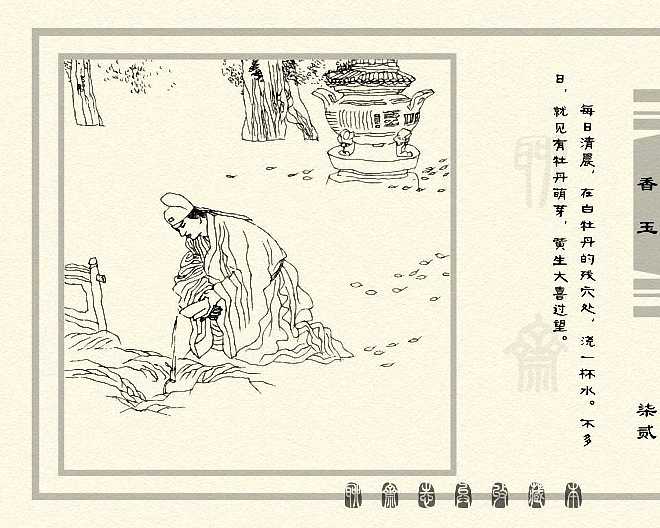 香玉
柒贰
每日清晨，在白牡丹的残穴处，浇一杯水。不多
日，就见有牡丹萌芽，黄生大喜过望。